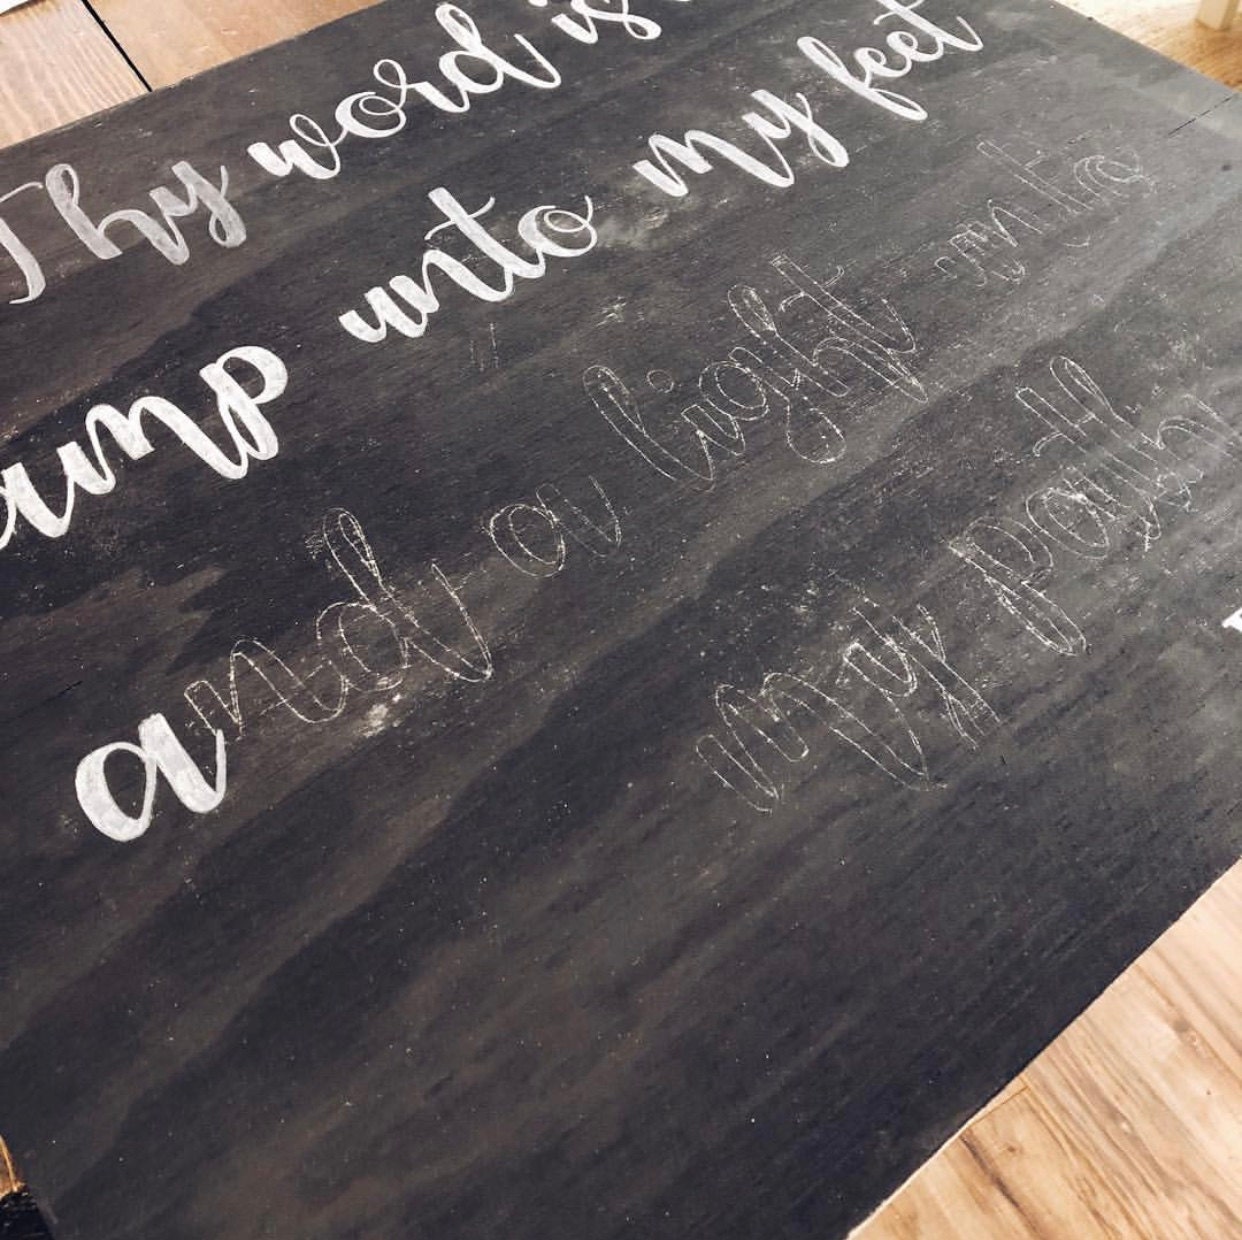 Thy word is
amp unto my feet
and a light unto
my path